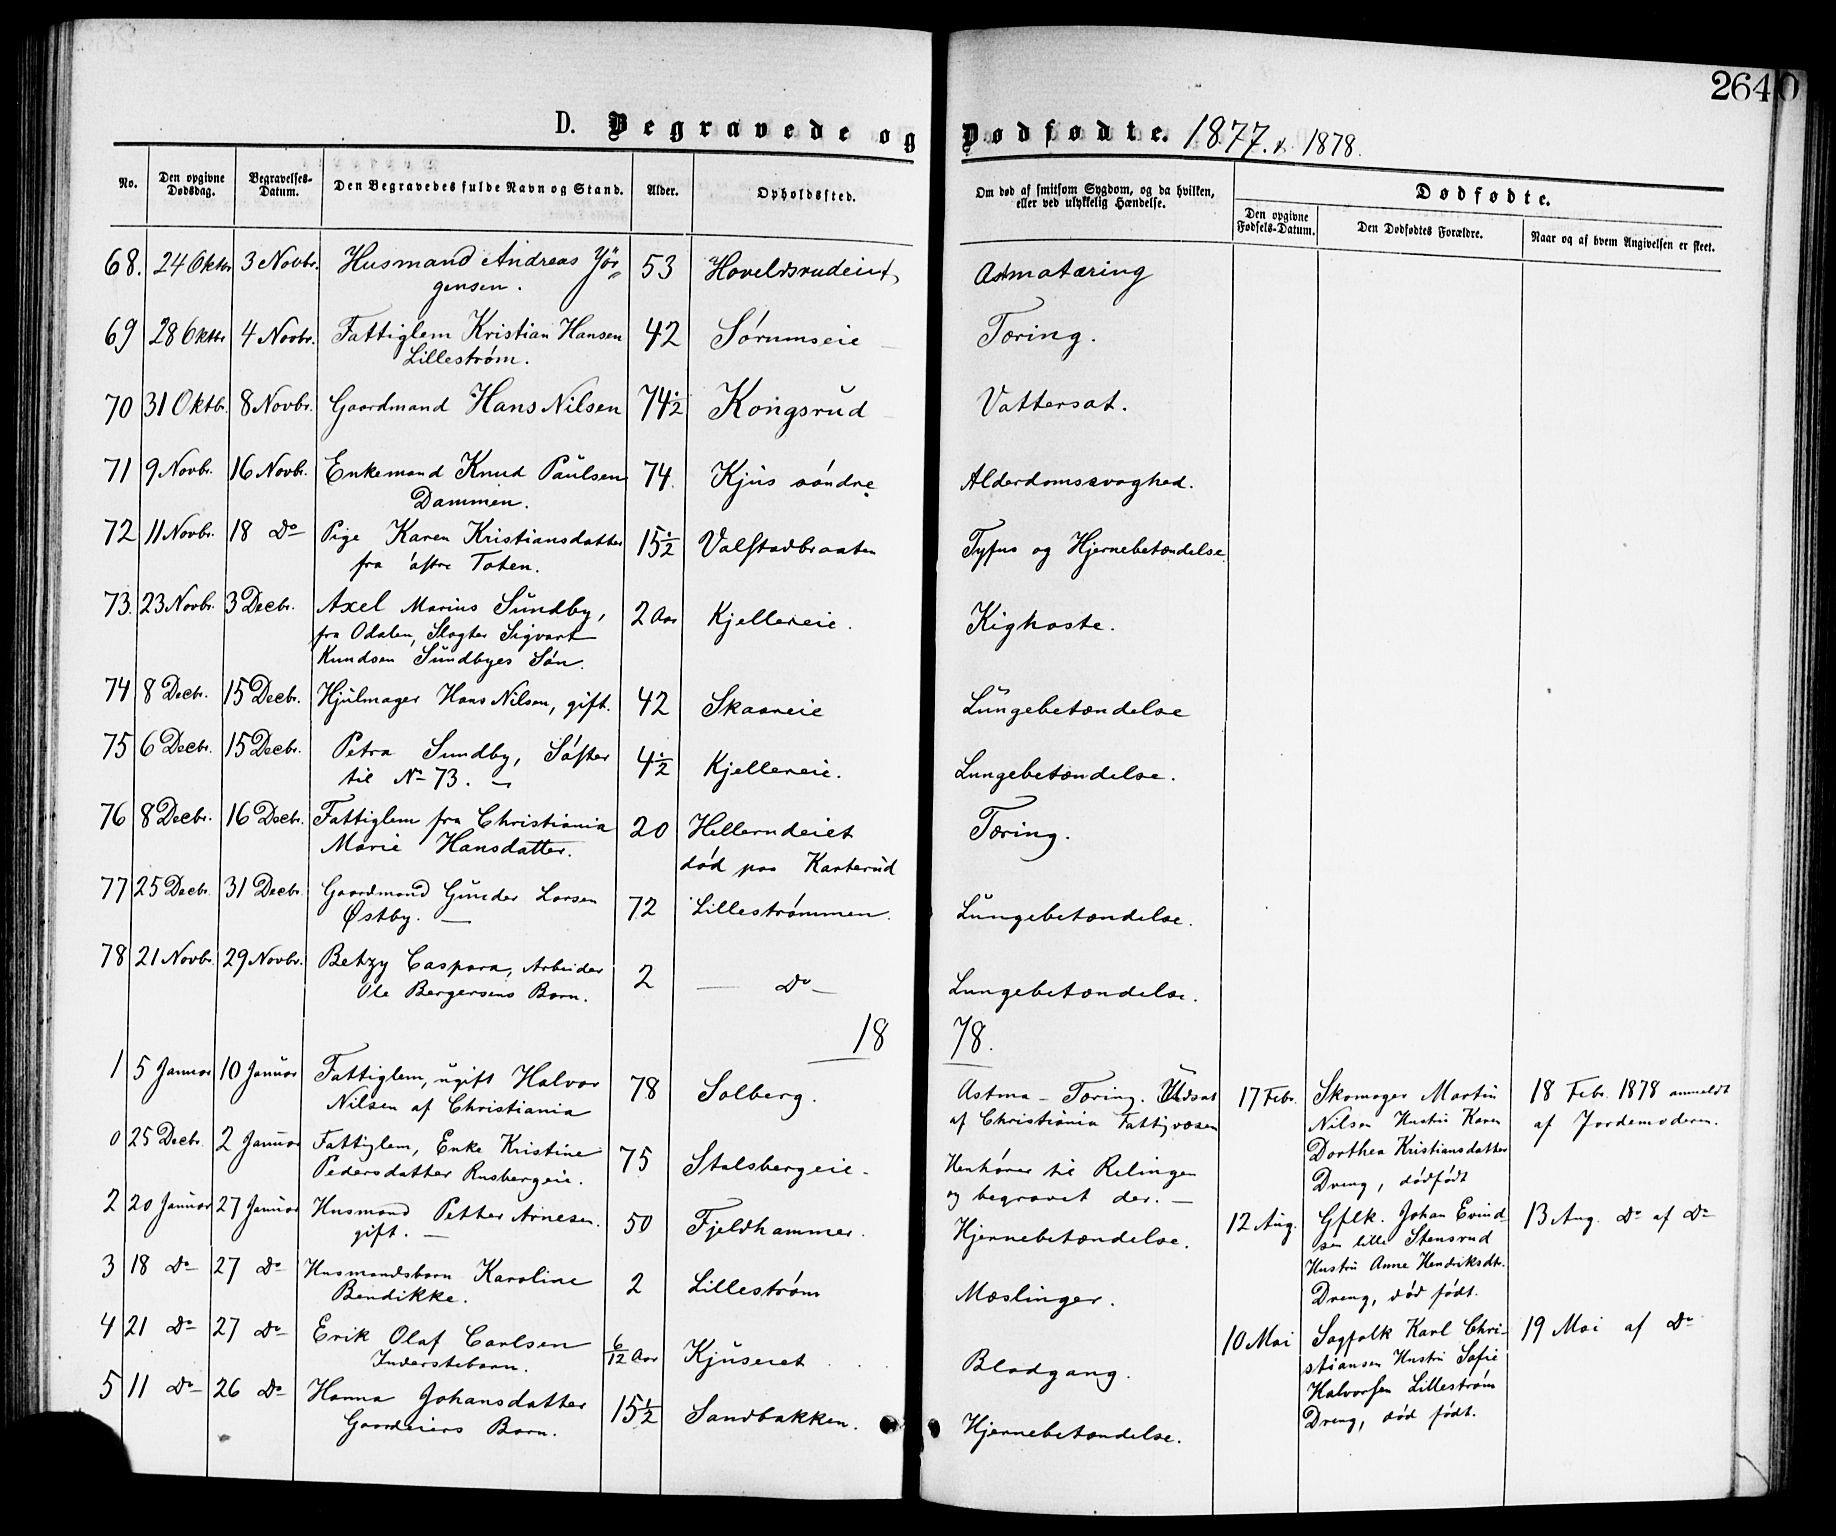 264
D. Begravede og Dødfødte. 1877. & 1878.
No. Den opgivne Dødsdag. Begravelses-Datum. Den Begravedes fulde Navn og Stand. Alder. Opholdssted. Om død af smitsom Sygdom, og da hvilken, eller ved ulykkelig Hændelse. Dødfødte.
Den opgivne Fødsels-Datum. Den Dødfødtes Forældre. Naar og af hvem Angivelsen er skeet.
68. 24 Oktbr 3 Novbr. Husmand Andreas Jör- 53 Hoveldsrudeiet Astmatæring
gensen.
69 28 Oktbr 4 Novbr. Fattiglem Kristian Hansen 42 Sørumseie Tæring.
Lillestrøm.
70 31 Oktb. 8 Novbr. Gaardmand Hans Nilsen 74½ Kongsrud Vattersot.
71 9 Novbr. 16 Novbr. Enkemand Knud Paulsen 74. Kjus søndre Alderdomssvaghed.
Dammen.
72 11 Novbr. 18 Do Pige Karen Kristiansdatter 15½ Valstadbraaten Tyfus og Hjernebetændelse
fra østre Toten.
73. 23 Novbr. 3 Decbr. Axel Marius Sundby, 2 Aar Kjellereie. Kighoste.
fra Odalen, Slagter Sigvart
Knudsen Sundbyes Søn.
74 8 Decbr. 15 Decbr. Hjulmager Hans Nilsen, gift. 42 Skaareie Lungebetændelse
75 6 Decbr. 15 Decbr. Petra Sundby, Søster 4½ Kjellereie. Lungebetændelse.
til No 73.
76 8 Decbr. 16 Decbr. Fattiglem fra Christiania 20 Hellerudeiet Tæring.
Marie Hansdatter. død paa Karterud
77 25 Decbr. 31 Decbr. Gaardmand Gunder Larsen 72 Lillestrømmen. Lungebetændelse.
Østby.
78 21 Novbr. 29 Novbr. Betzy Caspara, Arbeider 2 Do Lungebetændelse.
Ole Bergersens Barn.
18 78.
1 5 Januar 10 Januar Fattiglem, ugift Halvor 78 Solberg. Astma - Tæring. Udsat 17 Febr. Skomager Martin 18 Febr. 1878 anmeldt
Nilsen af Christiania af Christiania Fattigvæsen Nilsen Hustru Karen af Jordemoderen.
0 25 Decbr. 2 Januar Fattiglem, Enke Kristine 75 Stalsbergeie. Henhører til Relingen Dorthea Kristiansdatter
Pedersdatter Rusbergeie. og begravet der. Dreng, dødfødt
2 20 Januar 27 Januar Husmand Petter Arnesen. 50 Fjeldhammer. Hjernebetændelse. 12 Aug. Gflk. Johan Evind- 13 Aug. Do af Do
gift. sen lille Stensrud
3 18 Do 27 Do Husmandsbarn Karoline 2 Lillestrøm Mæslinger. Hustru Anne Hendriksdtr.
Bendikke. Dreng, død født.
4 21 Do 27 Do Erik Olaf Carlsen 6/12 Aar Kjuseiet Blodgang. 10 Mai Sagfolk Karl Chri- 19 Mai af Do
Inderstebarn. stiansen Hustru Sofie
5 11 Do 26 Do Hanna Johansdatter 15½ Sandbakken. Hjernebetændelse. Halvorsen Lillestrøm
Gaardeiers Barn. Dreng, død født.